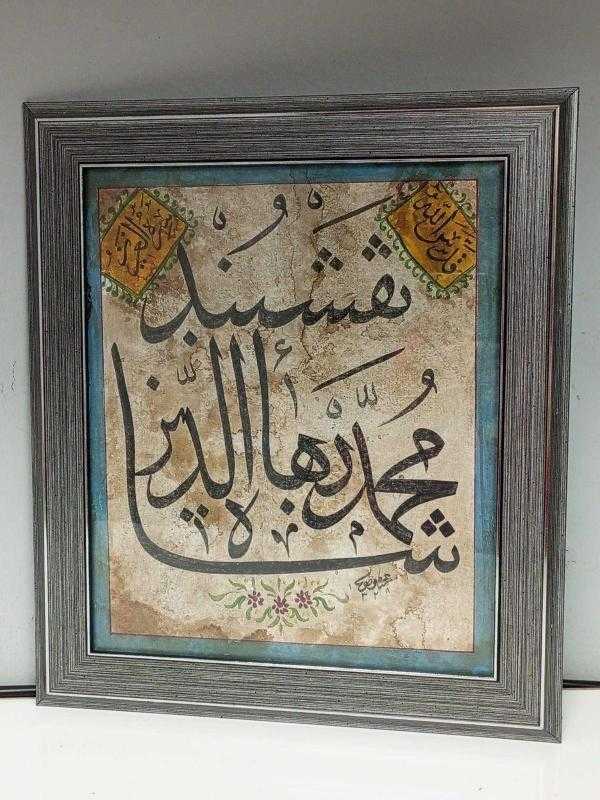 قدس الله
سره العزيز
نقشبند
محمد بهاء الدين
شاه